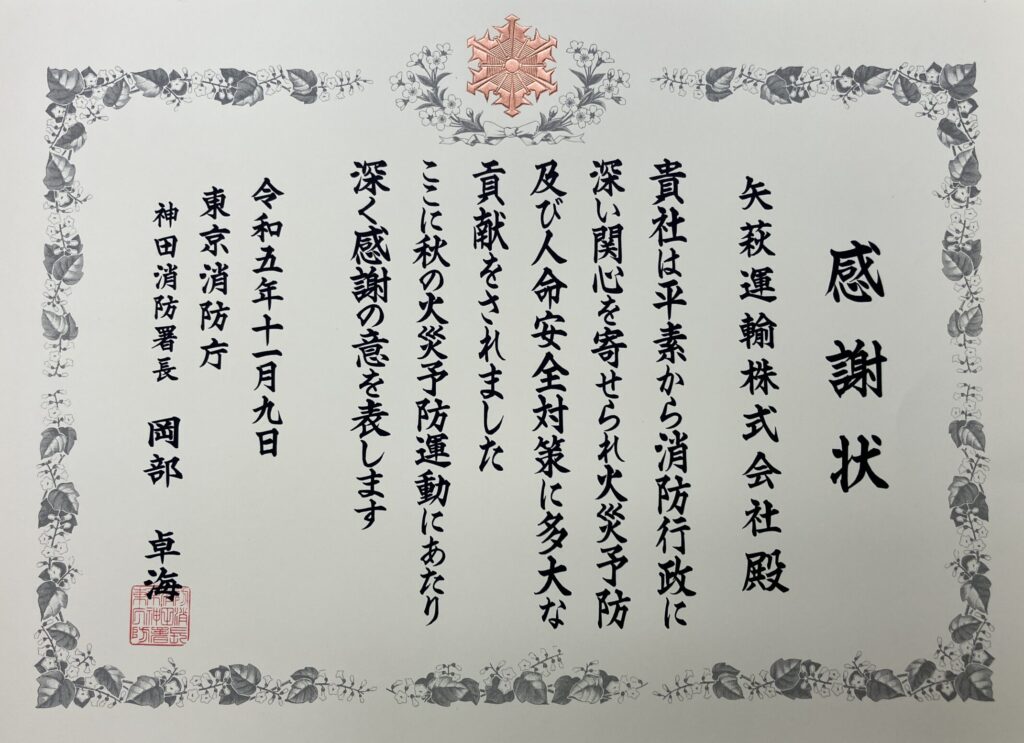 感謝状
矢萩運輸株式会社殿
貴社は平素から消防行政に
深い関心を寄せられ火災予防
及び人命安全対策に多大な
貢献をされました
ここに秋の火災予防運動にあたり
深く感謝の意を表します
令和五年十一月九日
東京消防庁
神田消防署長 岡部 卓海